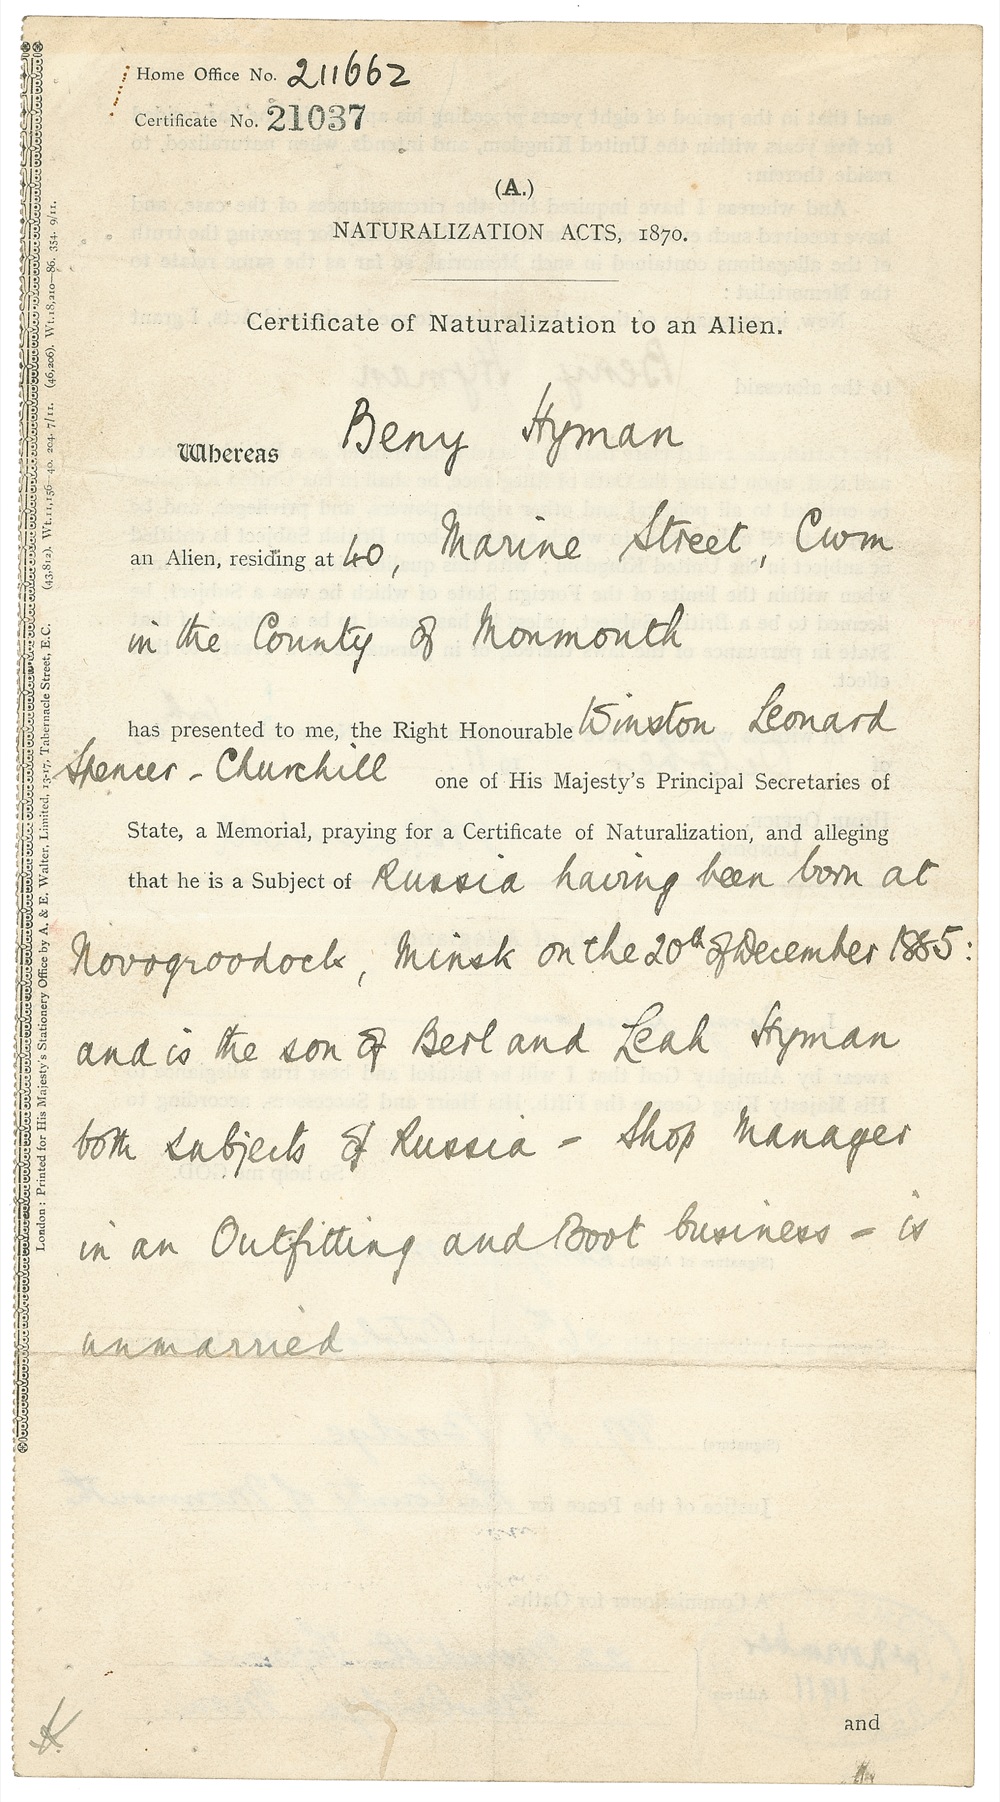 Home Office No. 211662
Certificate No. 21037
(A.)
NATURALIZATION ACTS, 1870.
Certificate of Naturalization to an Alien.
Whereas Beny Hyman
an Alien, residing at 40, Marine Street, Cwm
in the County of Monmouth
has presented to me, the Right Honourable Winston Leonard
Spencer - Churchill one of His Majesty's Principal Secretaries of
State, a Memorial, praying for a Certificate of Naturalization, and alleging
that he is a Subject of Russia having been born at
Novogroodock, Minsk on the 20th of December 1885:
and is the son of Berl and Leah Hyman
both subjects of Russia - Shop Manager
in an Outfitting and Boot business - is
unmarried
and
London: Printed for His Majesty's Stationery Office by A. & E. Walter, Limited, 13-17, Tabernacle Street, E.C. (43,812). Wt. 11,156—40. 204. 7/11. (46,206). Wt. 18,210—86. 354. 9/11.